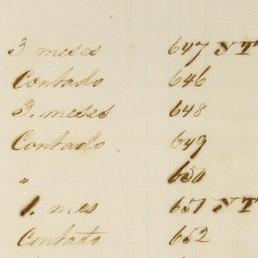 3 meses 647 NT
Contado 646
3. meses 648
Contado 649
" 650
1. mes 651 NT
Contado 652